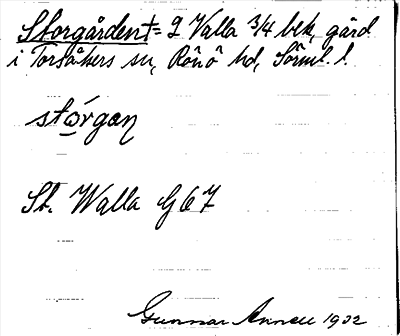 Storgården t = 2 Valla 3/4 bek, gård
i Torsåkers sn, Rönö hd, Sörml. l.
stórgan
St. Walla G 67
Gunnar Annell 1932